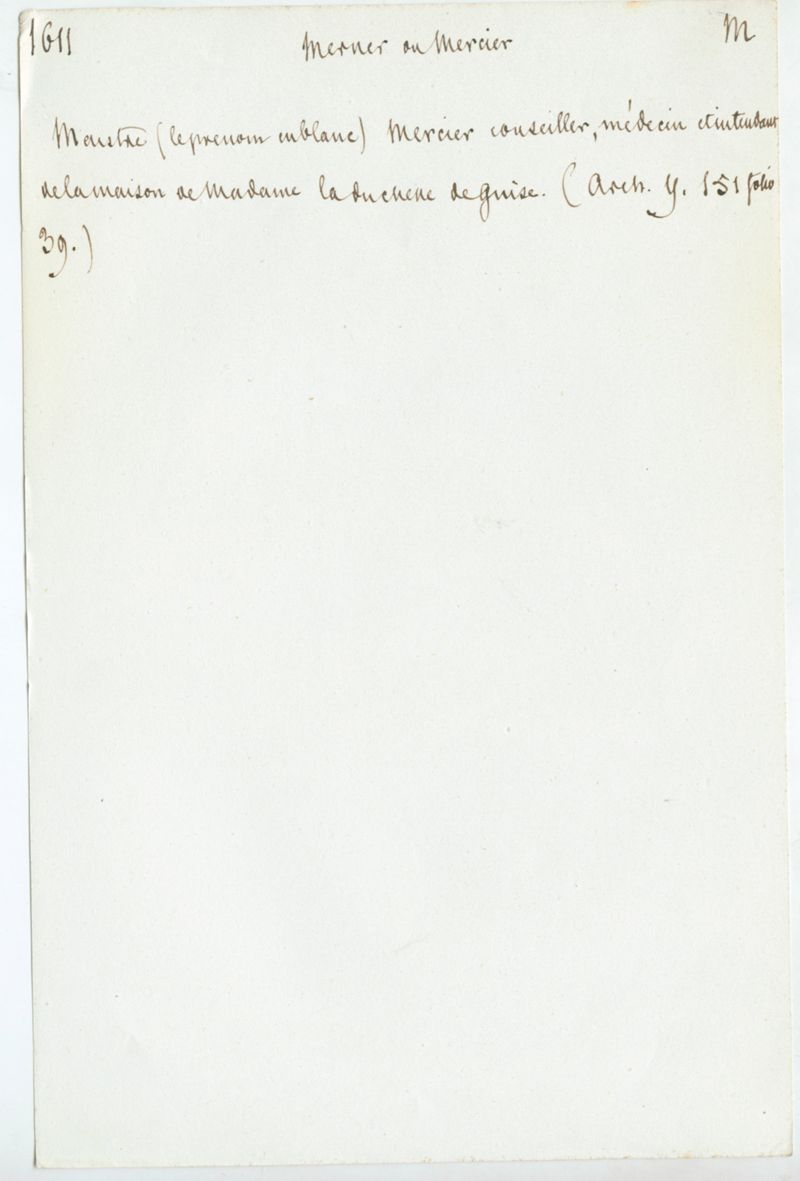 1611 Merner ou Mercier M
Monstre (le prenom en blanc) Mercier conseiller, médecin et intendant
de la maison de Madame la duchene de guise. (Arch. Y. 151 folio
39.)